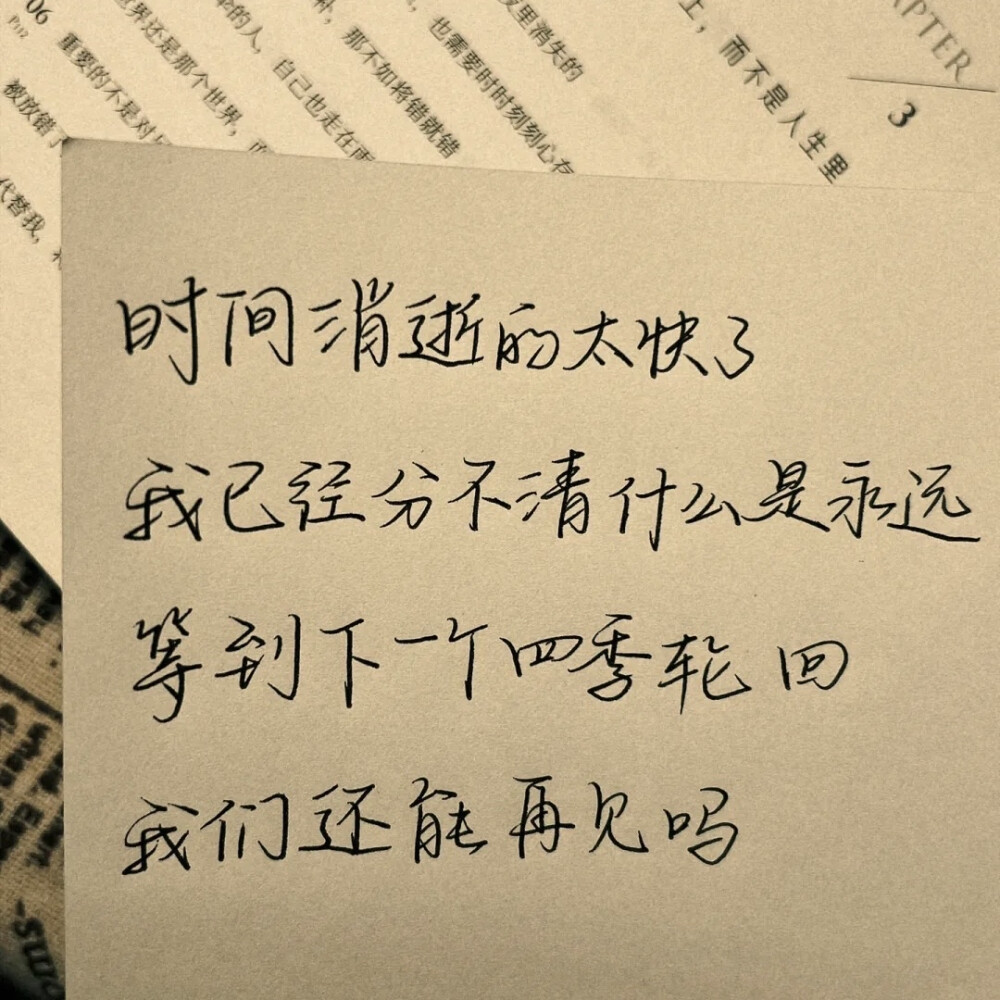 06
P112
重要的不是对
被放错了
代替我，
世界还是那个世界，
的人，自己也走在雨
那不如将错就错
也需要时时刻刻心存
夜里消失的
上，而不是人生里
APTER
3
时间消逝的太快了
我已经分不清什么是永远
等到下一个四季轮回
我们还能再见吗